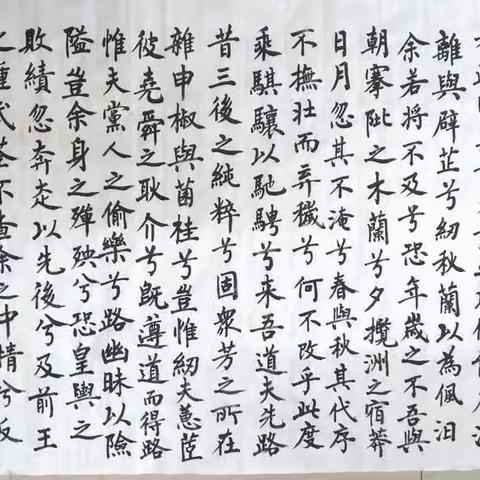 離與辟芷兮紉秋蘭以為佩汨
余若将不及兮恐年歲之不吾與
朝搴阰之木蘭兮夕攬洲之宿莽
日月忽其不淹兮春與秋其代序
不撫壯而弃穢兮何不改乎此度
乘騏驥以馳騁兮来吾道夫先路
昔三後之純粹兮固眾芳之所在
雜申椒與菌桂兮豈惟紉夫蕙茝
彼堯舜之耿介兮既遵道而得路
惟夫黨人之偷樂兮路幽昧以險
隘豈余身之殫殃兮恐皇輿之
敗績忽奔走以先後兮及前王
之踵武荃不查余之中情兮反